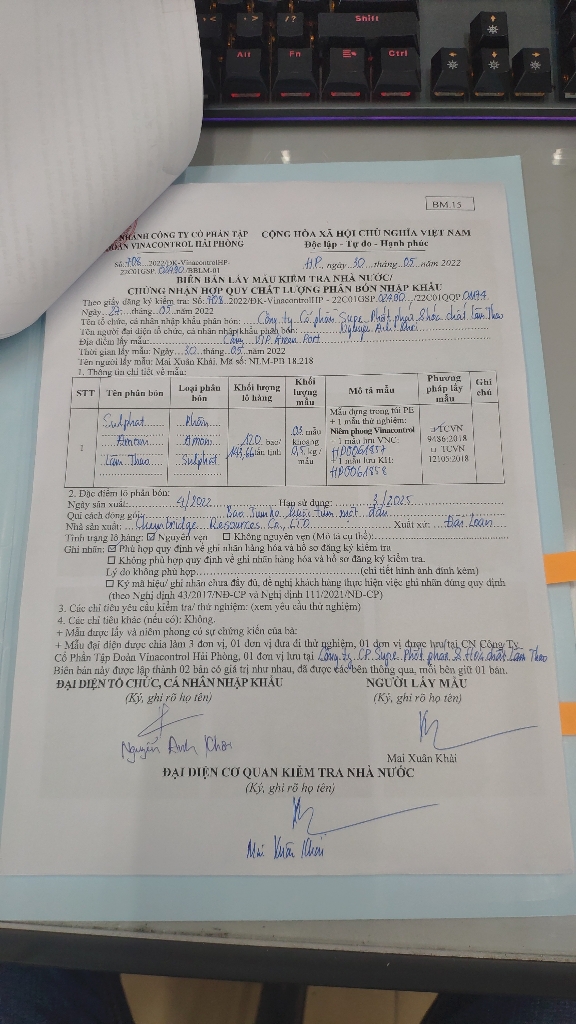 Shift
Alt
Fn
Ctrl
BM.15
NHÁNH CÔNG TY CỔ PHẦN TẬP
ĐOÀN VINACONTROL HẢI PHÒNG
CỘNG HÒA XÃ HỘI CHỦ NGHĨA VIỆT NAM
Độc lập - Tự do - Hạnh phúc
Số: 708 2022/ĐK-VinacontrolHP-
22C01GSP. 02490/BBLM-01
HP, ngày 30 tháng 05 năm 2022
BIÊN BẢN LẤY MẪU KIỂM TRA NHÀ NƯỚC/
CHỨNG NHẬN HỢP QUY CHẤT LƯỢNG PHÂN BÓN NHẬP KHẨU
Theo giấy đăng ký kiểm tra: Số: 708 2022/ĐK-VinacontrolHP - 22C01GSP. 02490 /22C01QQP
Ngày 27 tháng 05 năm 2022
Tên tổ chức, cá nhân nhập khẩu phân bón: Công ty Cổ phần Supe Phốt phát & hóa chất Lâm Thao
Tên người đại diện tổ chức, cá nhân nhập khẩu phân bón: Nguyễn Anh Khôi
Địa điểm lấy mẫu: Cảng VIP Green Port
Thời gian lấy mẫu: Ngày 30 tháng 05 năm 2022
Tên người lấy mẫu: Mai Xuân Khải. Mã số: NLM-PB 18.218
1. Thông tin chi tiết về mẫu:
STT Tên phân bón Loại phân bón Khối lượng lô hàng Khối lượng mẫu Mô tả mẫu Phương pháp lấy mẫu Ghi chú
1 Sulphat Amon Lâm Thao Phân Amon Sulphat 120 bao/ tấn tịnh 03 mẫu khoảng 0,5 kg/ mẫu Mẫu đựng trong túi PE
+ 1 mẫu thử nghiệm:
Niêm phong Vinacontrol
+ 1 mẫu lưu VNC:
HP0061857
+ 1 mẫu lưu KH:
HP0061858
TCVN 9486:2018
TCVN 12105:2018
2. Đặc điểm lô phân bón:
Ngày sản xuất: 4/2022 Hạn sử dụng: 3/2025
Qui cách đóng gói: Bao Jumbo
Nhà sản xuất: Chembridge Resources Co., LTD Xuất xứ: Đài Loan
Tình trạng lô hàng: ☑ Nguyên vẹn ☐ Không nguyên vẹn (Mô tả cụ thể):
Ghi nhãn: ☑ Phù hợp quy định về ghi nhãn hàng hóa và hồ sơ đăng ký kiểm tra
☐ Không phù hợp quy định về ghi nhãn hàng hóa và hồ sơ đăng ký kiểm tra.
Lý do không phù hợp (chi tiết hình ảnh đính kèm)
☐ Ký mã hiệu/ ghi nhãn chưa đầy đủ, đề nghị khách hàng thực hiện việc ghi nhãn đúng quy định
(theo Nghị định 43/2017/NĐ-CP và Nghị định 111/2021/NĐ-CP)
3. Các chỉ tiêu yêu cầu kiểm tra/ thử nghiệm: (xem yêu cầu thử nghiệm)
4. Các chỉ tiêu khác (nếu có): Không.
+ Mẫu được lấy và niêm phong có sự chứng kiến của hà:
+ Mẫu đại diện được chia làm 3 đơn vị, 01 đơn vị đưa đi thử nghiệm, 01 đơn vị được lưu tại CN Công Ty
Cổ Phần Tập Đoàn Vinacontrol Hải Phòng, 01 đơn vị lưu tại Công ty CP Supe Phốt phát & Hóa chất Lâm Thao
Biên bản này được lập thành 02 bản có giá trị như nhau, đã được các bên thông qua, mỗi bên giữ 01 bản.
ĐẠI DIỆN TỔ CHỨC, CÁ NHÂN NHẬP KHẨU
NGƯỜI LẤY MẪU
(Ký, ghi rõ họ tên)
(Ký, ghi rõ họ tên)
Nguyễn Anh Khôi
Mai Xuân Khải
ĐẠI DIỆN CƠ QUAN KIỂM TRA NHÀ NƯỚC
(Ký, ghi rõ họ tên)
Mai Xuân Khải